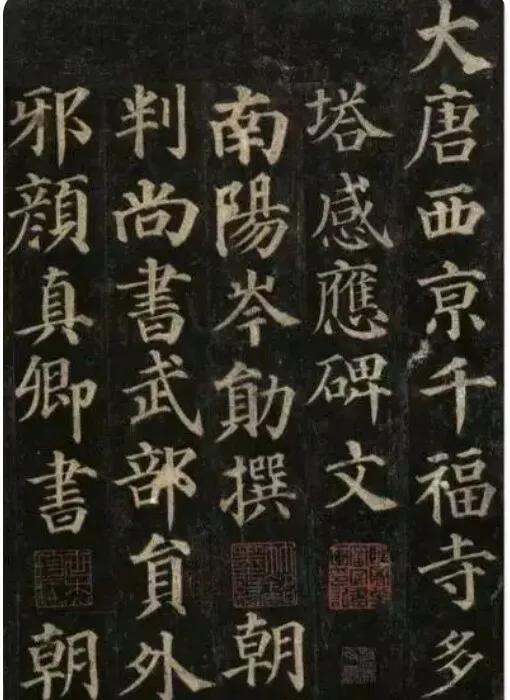 大唐西京千福寺多
塔感應碑文
南陽岑勛撰 朝
判尚書武部員外
邪顏真卿書 朝